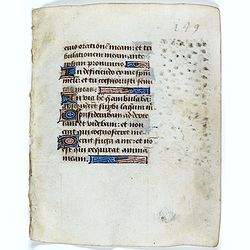 149
cuo oratione meam: et tri
bulationem meam ante
ipsum pronuncio
In deficiendo ex me spiri
meum: et tu cognovisti semi
tas meas
In via hac qua ambulaba
absconderunt superbi laqueum m
Considerabam ad dexte
ram et videbam: et non
erat qui cognosceret me
Periit fuga a me: et no
est qui requirat anima
meam